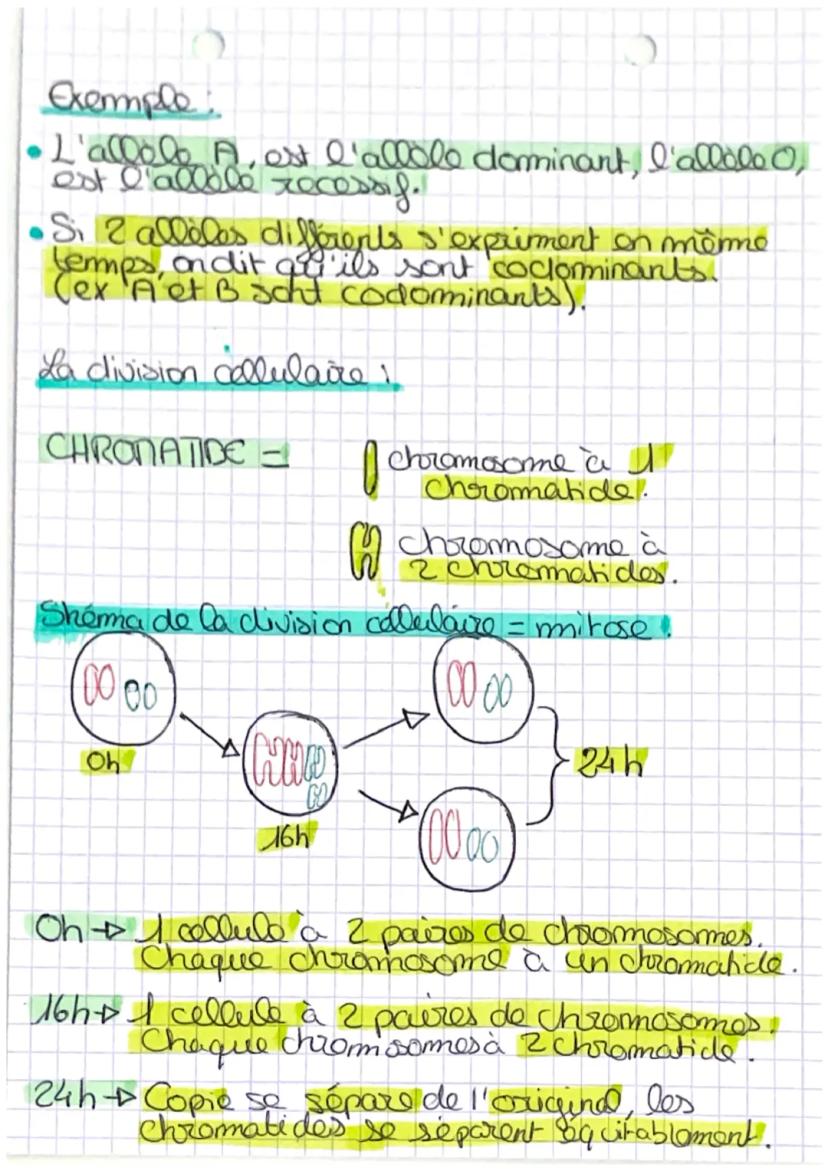 Exemple :
• L'allèle A, est l'allèle dominant, l'allèle O,
est l'allèle recessif.
• Si 2 allèles différents s'expriment en même
temps, on dit qu'ils sont codominants.
(ex A et B sont codominants).
La division cellulaire :
CHROMATIDE =
chromosome à 1
chrommatide.
chrommosome à
2 chrommatides.
Shéma de la division cellulaire = mitose :
0h
16h
24h
0h → 1 cellule à 2 paires de chromosommes.
Chaque chromosome à un chromatide.
16h → 1 cellule à 2 paires de chromosomes.
Chaque chromosomes à 2 chromatide.
24h → Copie se sépare de l'original, les
chromatides se séparent équitablement.